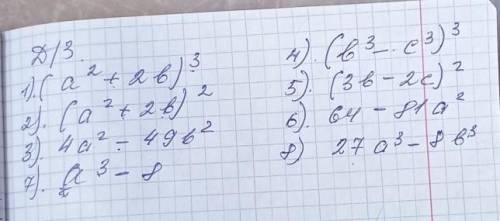 Д/З.
1). (a² + 2b)³
2). (a² + 2b)²
3). 4a² - 49b²
7). a³ - 8
4). (b³ - c³)³
5). (3b - 2c)²
6). 64 - 81a²
8) 27a³ - 8b³